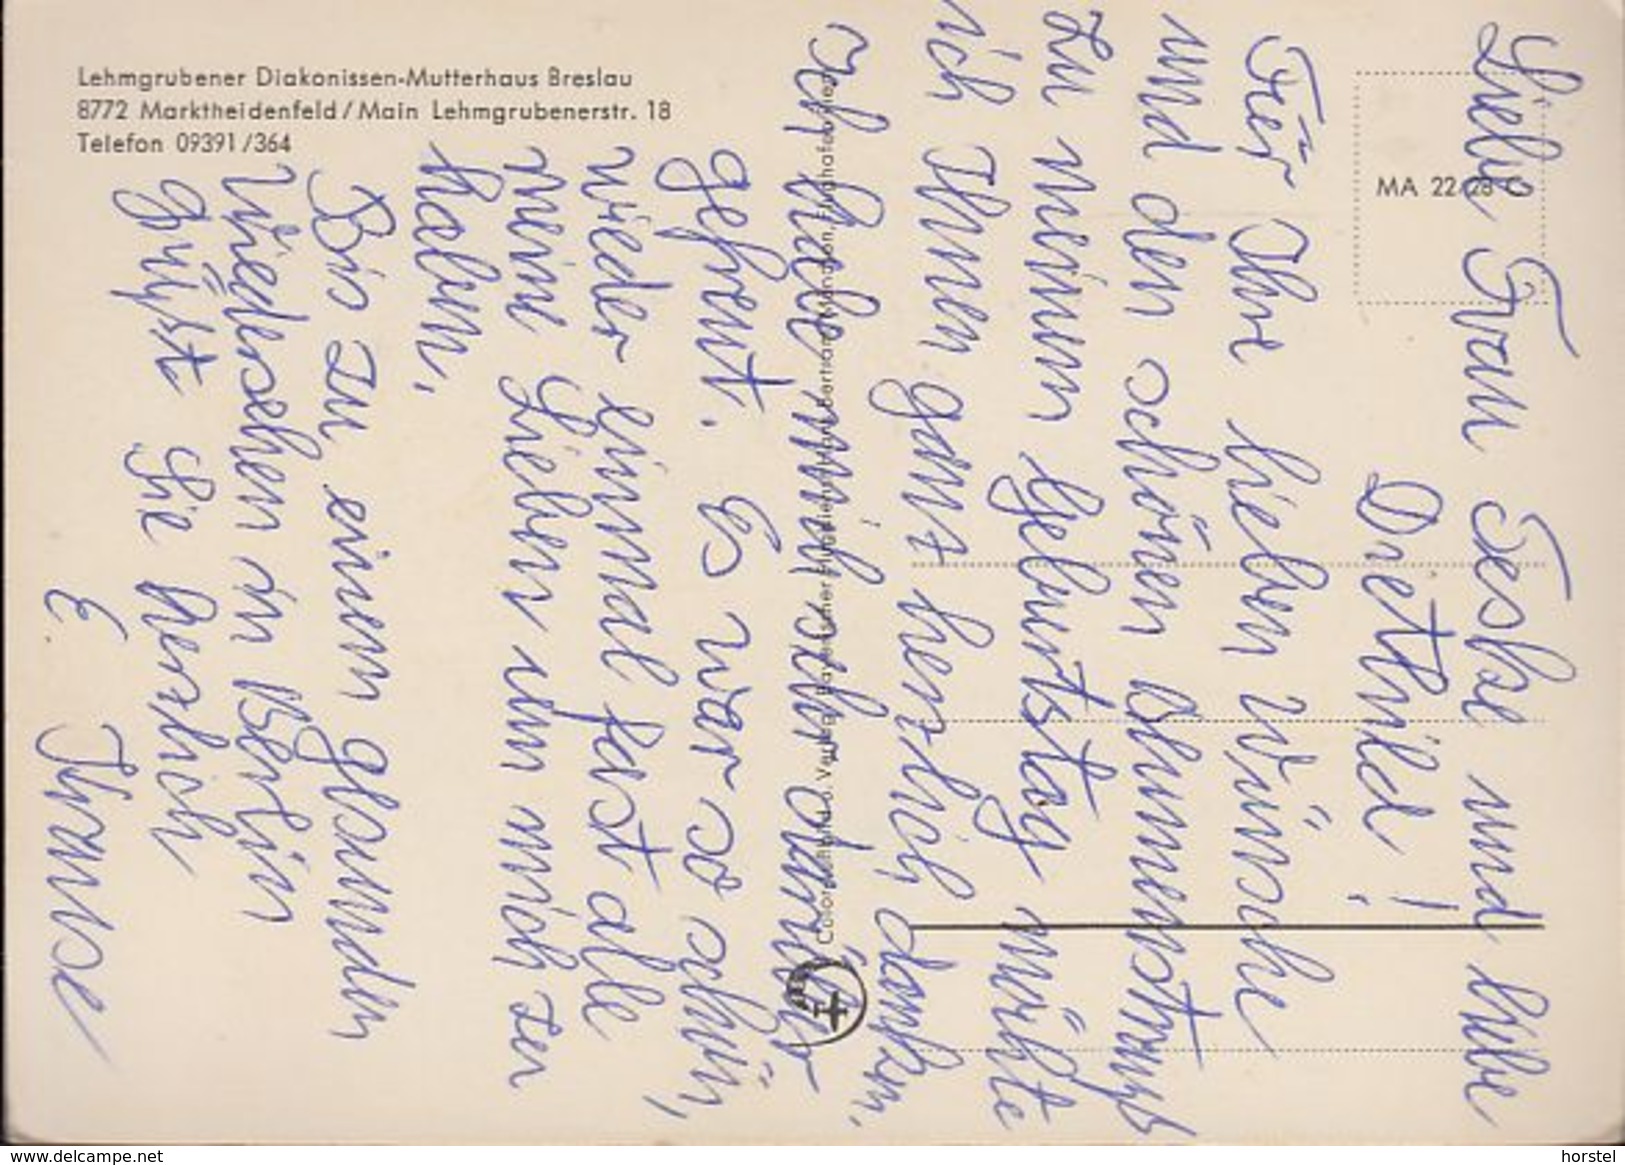 Lehmgrubener Diakonissen-Mutterhaus Breslau
8772 Marktheidenfeld/Main Lehmgrubenerstr. 18
Telefon 09391/364
MA 22/28 C
Liebe Frau Teske und liebe
Dietlind!
Für Ihre lieben Wünsche
und den schönen Blumenstrauß
zu meinem Geburtstag möchte
ich Ihnen ganz herzlich danken.
Ich habe mich sehr darüber
gefreut. Es war so schön,
wieder einmal fast alle
meine Lieben um mich zu
haben.
Bis zu einem gesunden
Wiedersehen in Berlin
grüßt Sie herzlich
E. Krause
www.delcampe.net
horstel